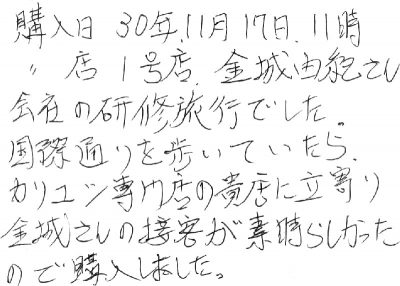 購入日 30年.11月17日.11時
〃 店 1号店. 金城由紀さん
会社の研修旅行でした。
国際通りを歩いていたら、
カリユシ専門店の貴店に立寄り
金城さんの接客が素晴らしかった
ので購入しました。